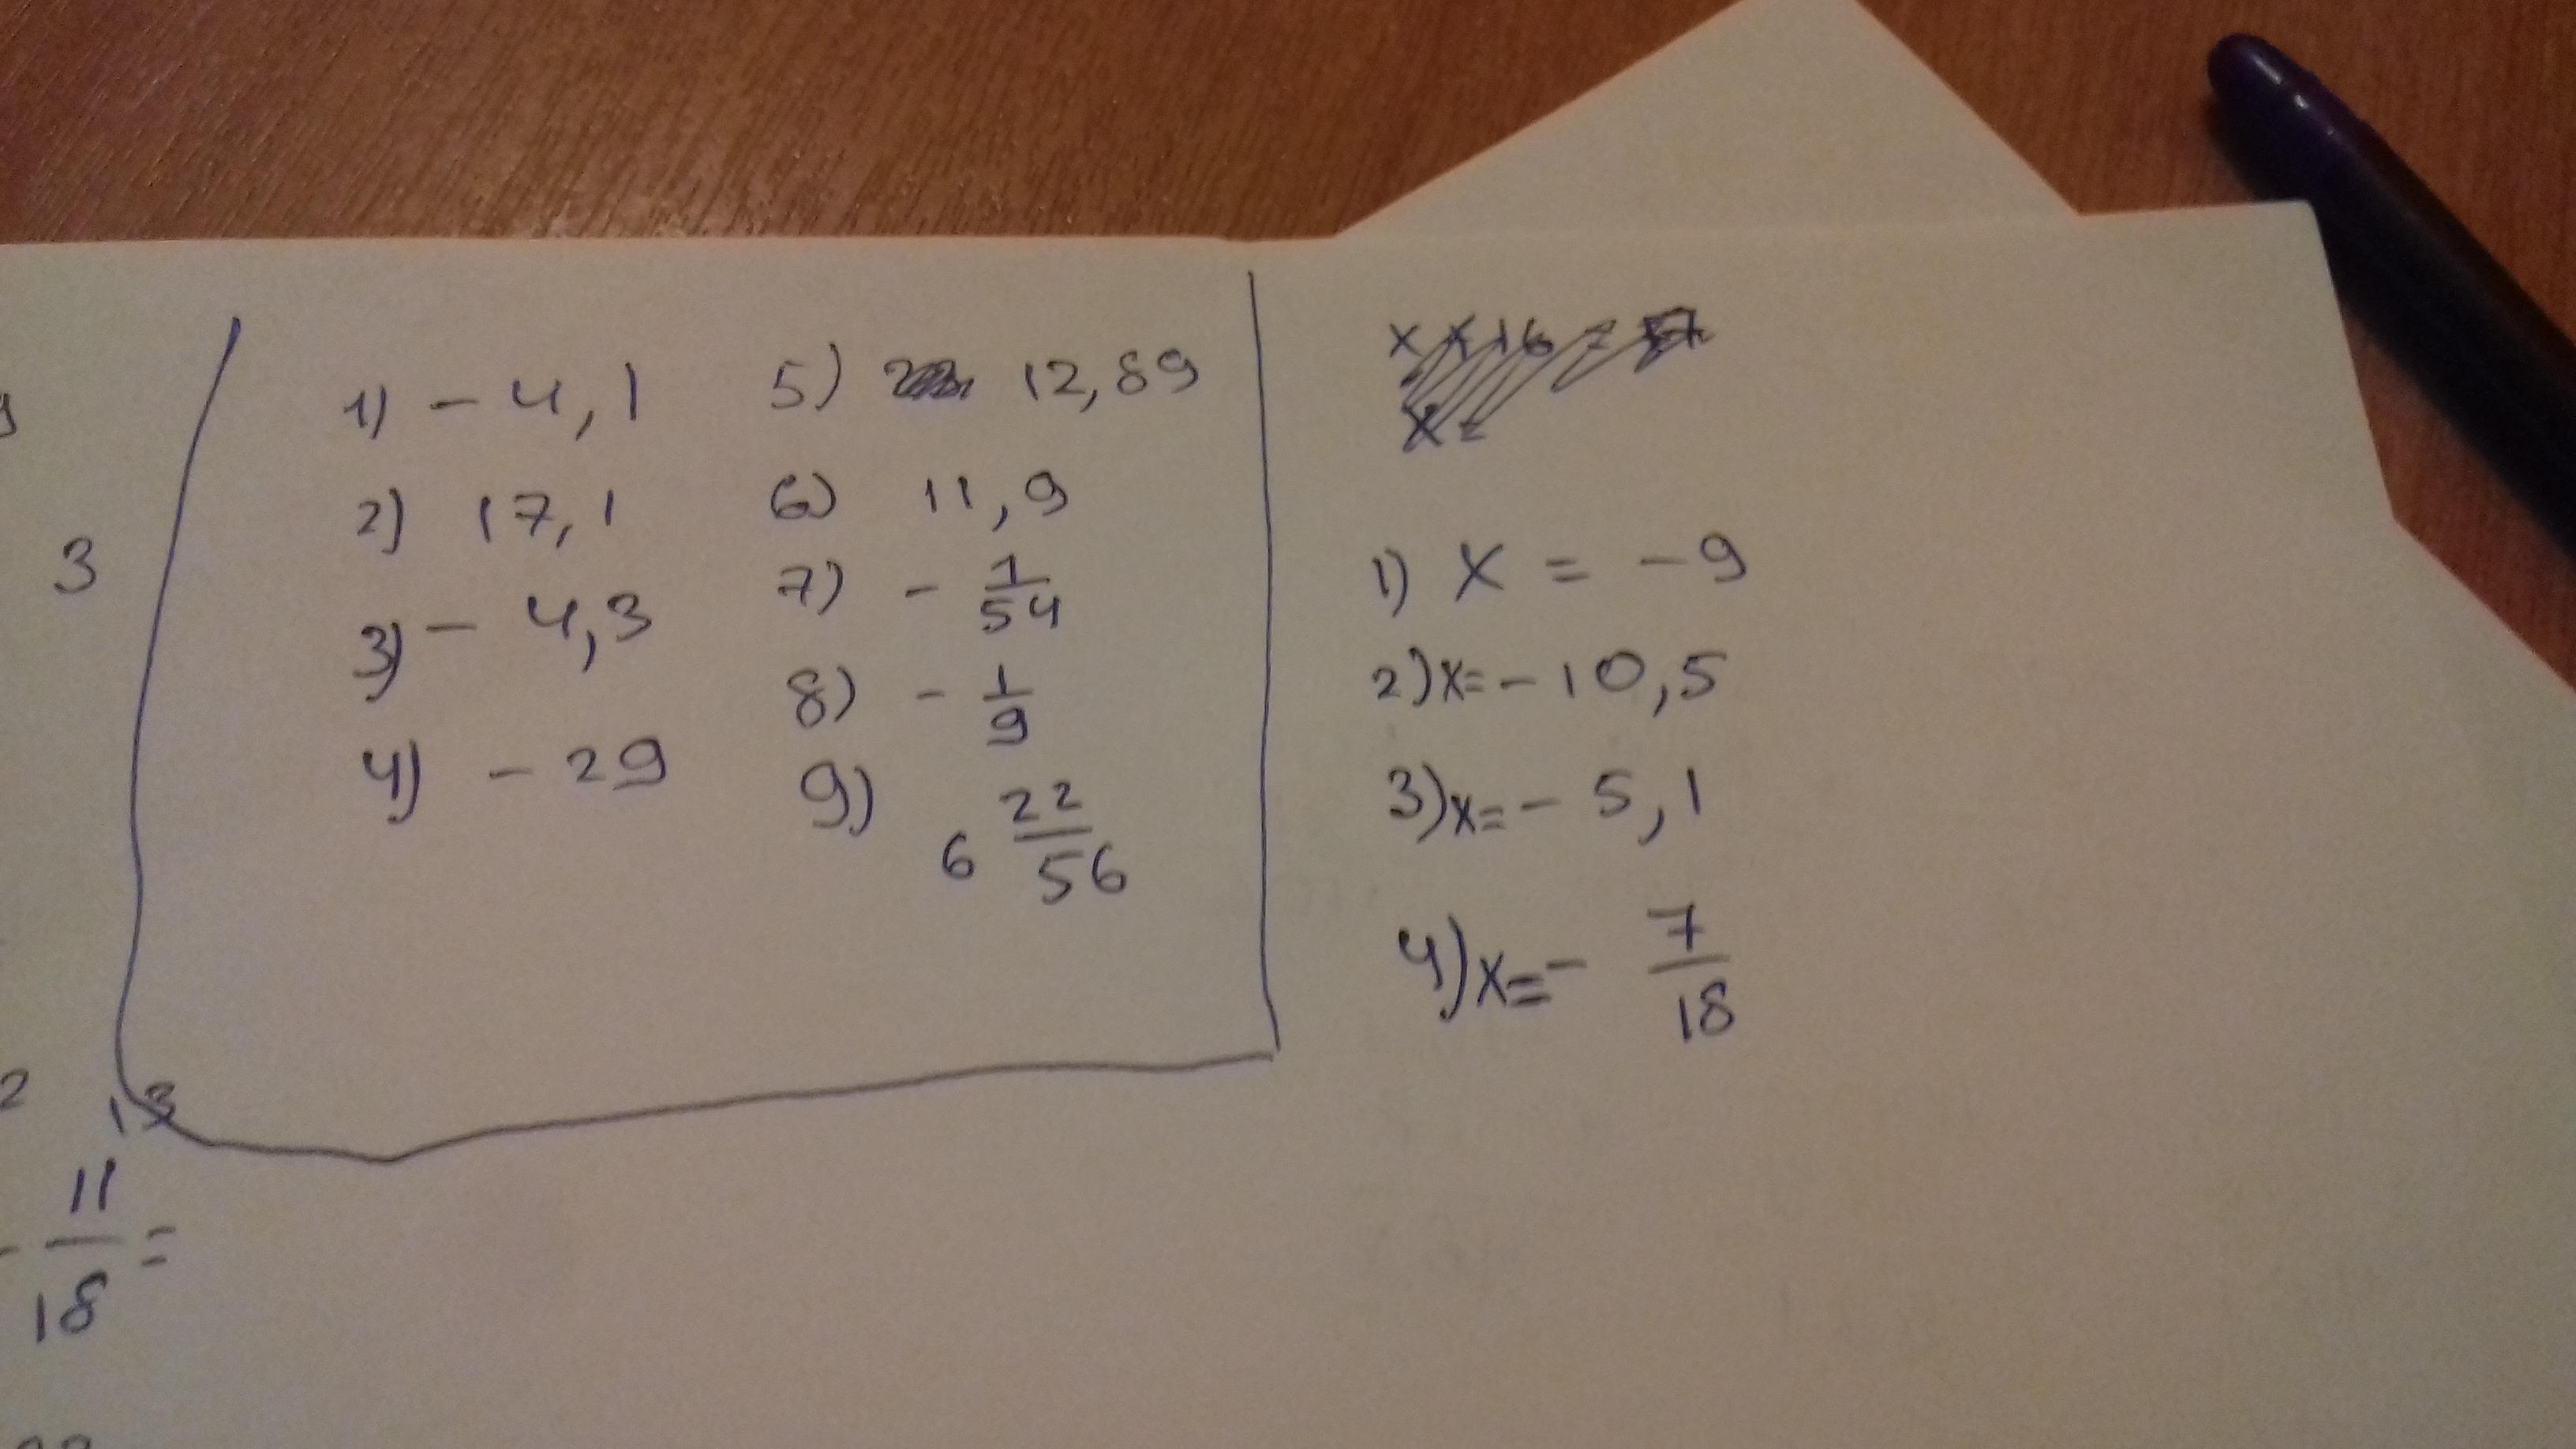 1) - 4,1
2) 17,1
3) - 4,3
4) - 29
5) 12,89
6) 11,9
7) - 1/54
8) - 1/9
9) 6 22/56
x + 16 = 
x =
1) x = -9
2) x = -10,5
3) x = - 5,1
4) x = - 7/18
3
2
13
- 11/18 =